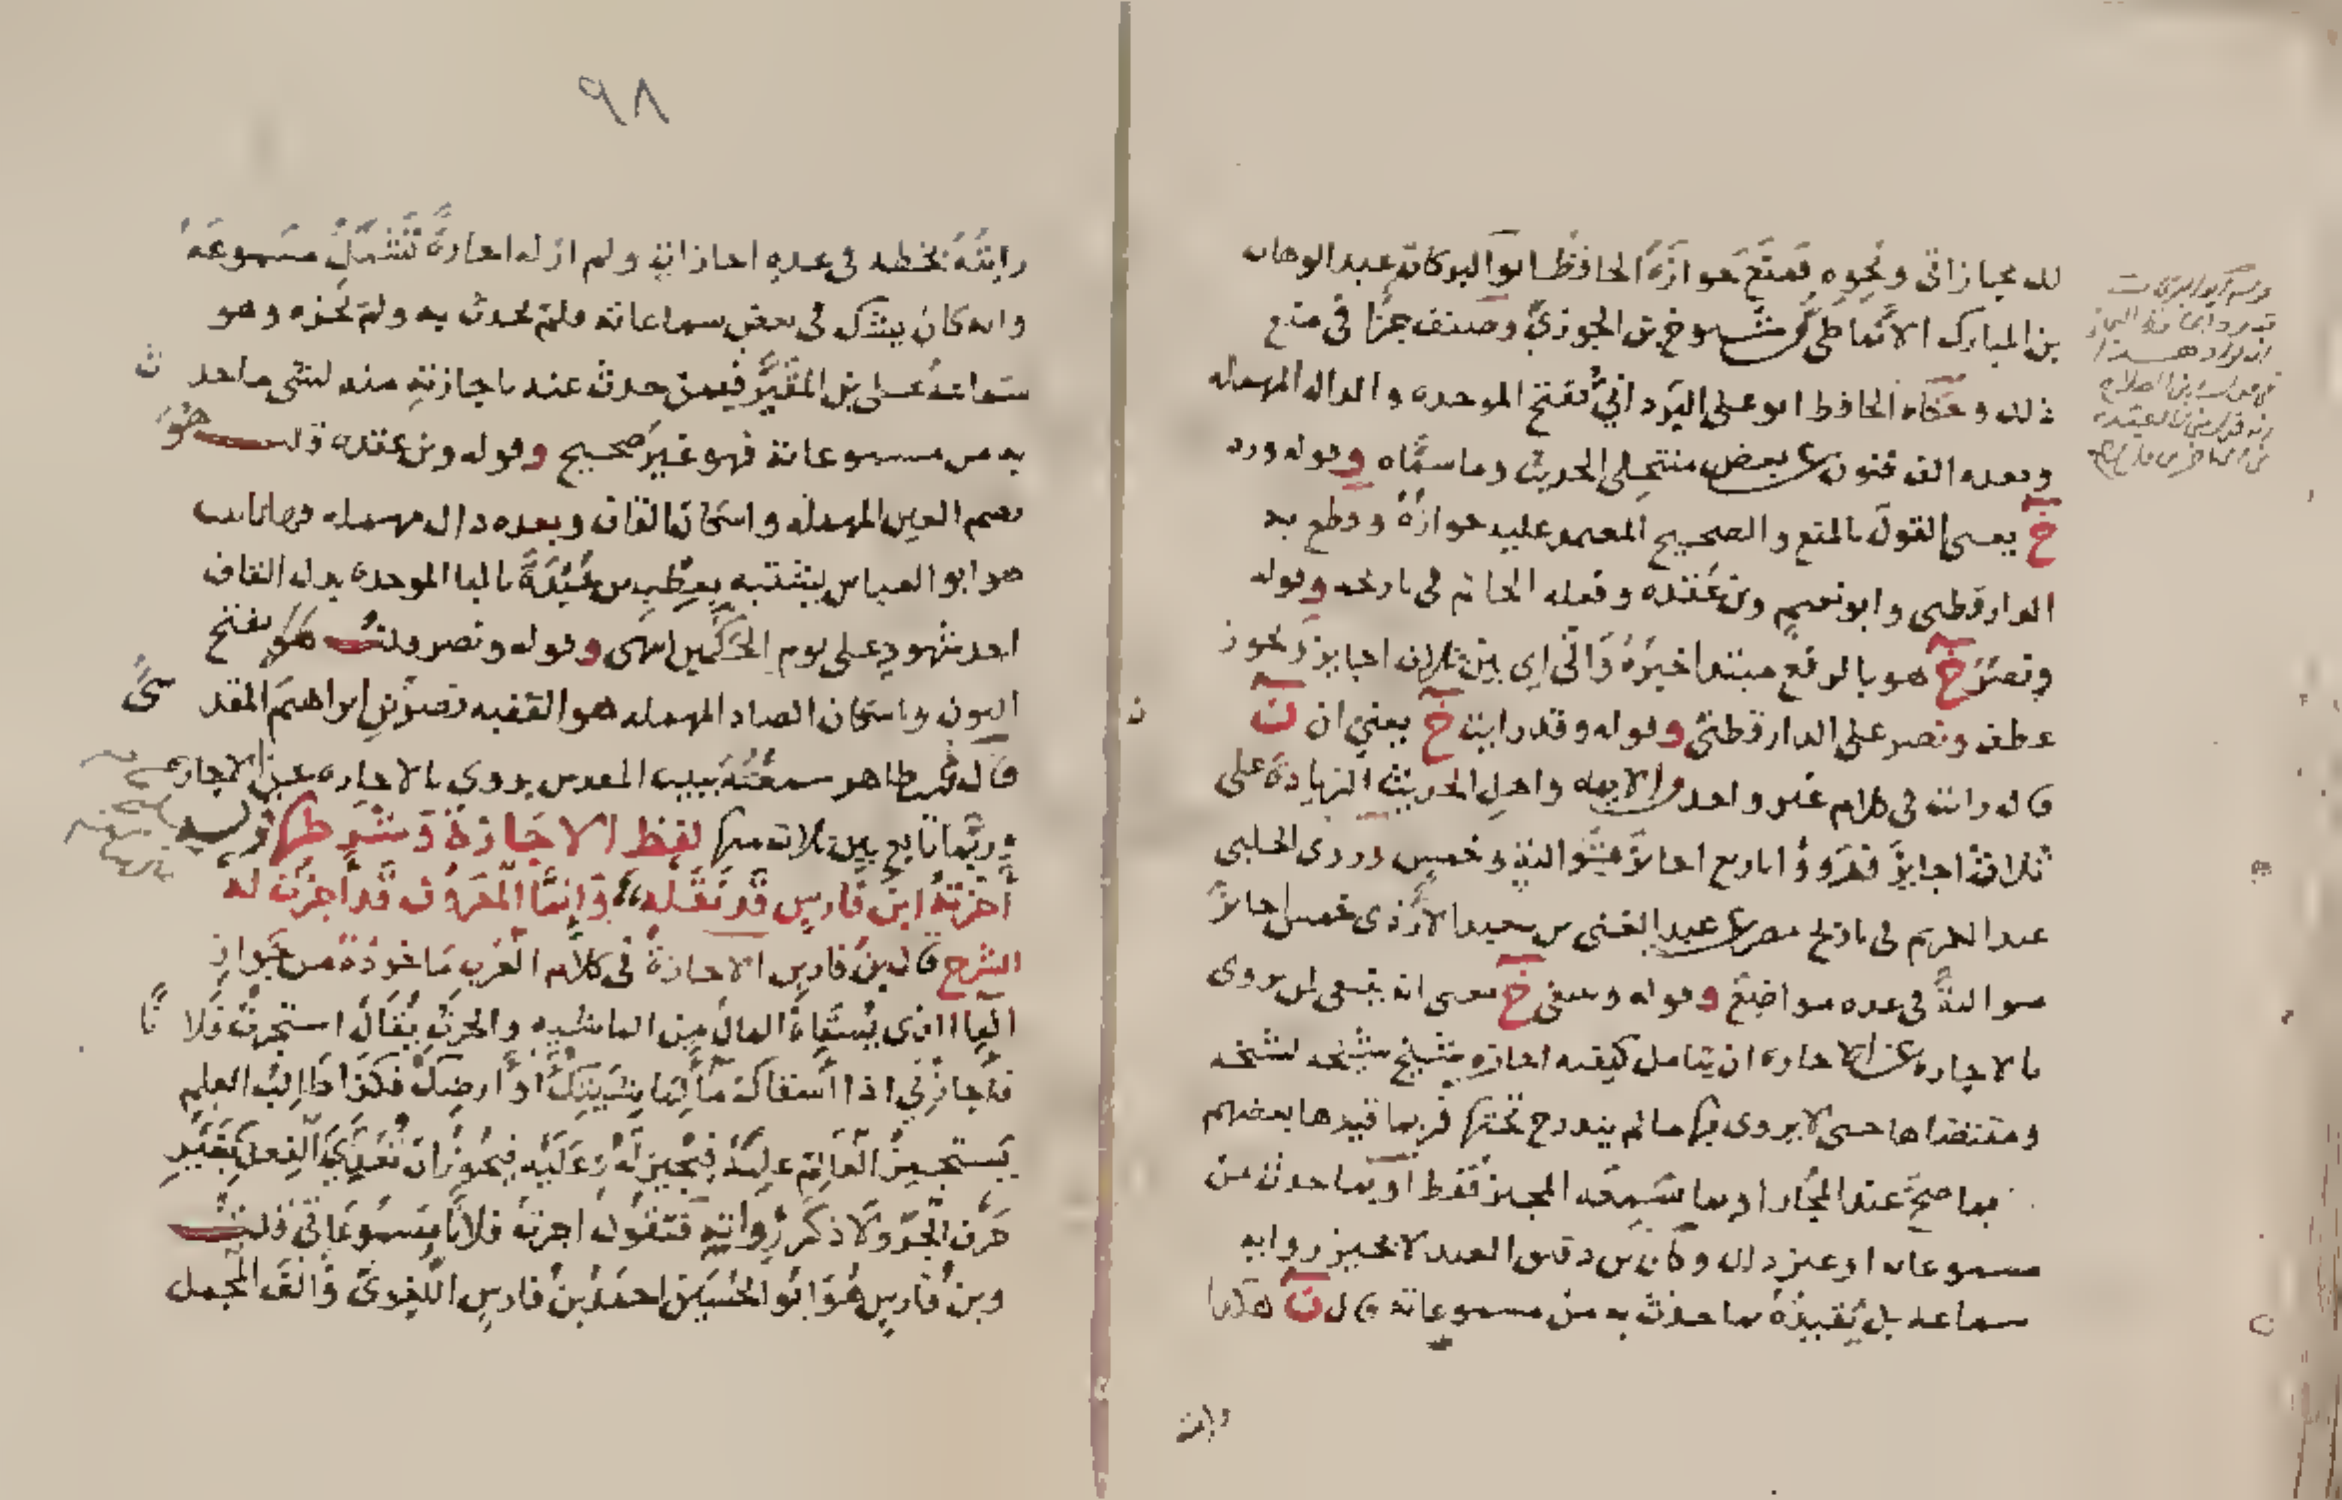 لك مجازاتي ونحوه فمنع جوازه الحافظ ابو البركات عبد الوهاب
بن المبارك الانماطي شيوخ بن الجوزي وصنف جزا في منع
ذلك وحكاه الحافظ ابو على البرداني بفتح الموحده والدال المهمله
وبعده الف فنون عن بعض منتحلي الحديث وما سماه وقوله ورد
خ يعنى القول بالمنع والصحيح المعمد عليه جوازه وقطع به
الدارقطنى وابو نعيم وبن عقده وفعله الحاكم في تاريخه وقوله
ونصر خ هو بالرفع مبتدا خبره والى اي بين ثلاث اجايز ويجوز
عطف ونصر على الدارقطني وقوله وقد رايت خ يعني ان ن
قال رايت في كلام غير واحد من الايمه واهل الحديث الزيادة على
ثلاثة اجايز فرووا باربع اجايز متوالية وخمس وروى الحلبى
عبد الكريم في تاريخ مصر عن عبد الغنى بن سعيد الازدى خمس اجايز
متوالية في عده مواضع وقوله وينبغى خ يعنى انه ينبغى لمن يروى
بالاجازه عن الاجازه ان يتامل كيفيه اجازه شيخ شيخه لشيخه
ومقتضاها حتى لا يروى بها ما لم يندرج تحتها فربما قيدها بعضهم
بما صح عند المجاز او بما سمعه المجيز فقط او بما حدث من
مسموعاته او غير ذلك وكان بن دقيق العيد لا يجيز روايه
سماعه بل يقيده بما حدث به من مسموعاته قال ن هكذا
رايته
٩٨
رايته بخطه في عده اجازاته ولم ار له اجازة تشمل مسموعه
وانه كان يشك في بعض سماعاته فلم يحدث به ولم يجزه وهو
سماعه على بن المقير فيمن حدث عنه باجازته منه لشى ماحد ث
به من مسموعاته فهو غير صحيح وقوله وبن عقده قلت هو
بضم العين المهمله واسكان القاف وبعده دال مهمله
هو ابو العباس يشتبه بن عبدة بالبا الموحده بدل القاف
احد شهود على يوم الحكمين انتهى وقوله ونصر قلت هو بفتح
النون واسكان الصاد المهمله هو الفقيه نصر بن ابراهيم المقد سى
قال بن طاهر سمعته ببيت المقدس يروى بالاجازه عن الاجازه
وربما تابع بين ثلاث منها لفظ الاجازة وشرطها
اجزته ابن فارس قد نقله وانما المعروف قد اجزت له
الشرح قال بن فارس الاجازة في كلام العرب ماخوذة من جواز
الما الذى يسقاه المال من الماشيه والحرث يقال استجزت فلا نا
فاجازني اذا اسقاك ما لماشيتك او ارضك فكذا طالب العلم
يستجيز العالم علمه فيجيزه له وعليه فيجوز ان تعدي الفعل بغير
حرف الجر ولا ذكر رواية فتقول اجزته فلانا مسموعاتي قلت
وبن فارس هو ابو الحسين احمد بن فارس اللغوى والف المجمل